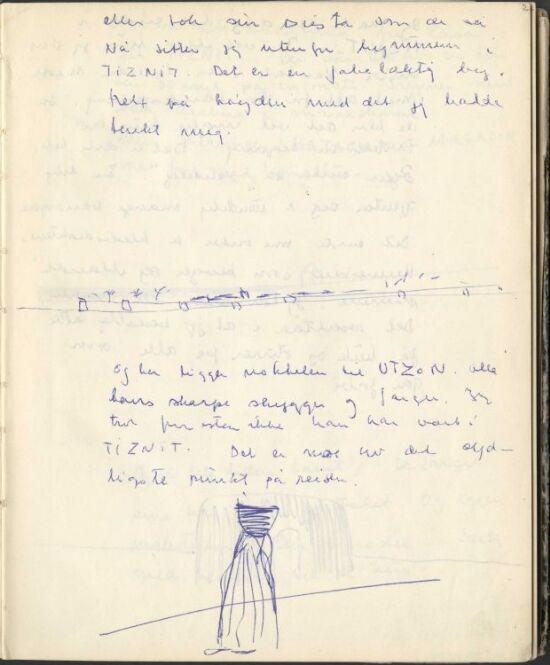 eller tok sin siesta som de sa
Nå sitter jeg utenfor bymuren i
TIZNIT. Det er en fabelaktig by.
helt på høyden med det jeg hadde
tenkt meg.
og her ligger nøkkelen til UTZON. alle
hans skarpe skygger og farger. Jeg
tror forresten ikke han har vært i
TIZNIT. Det er noe av det
ligste punkt på reisen.